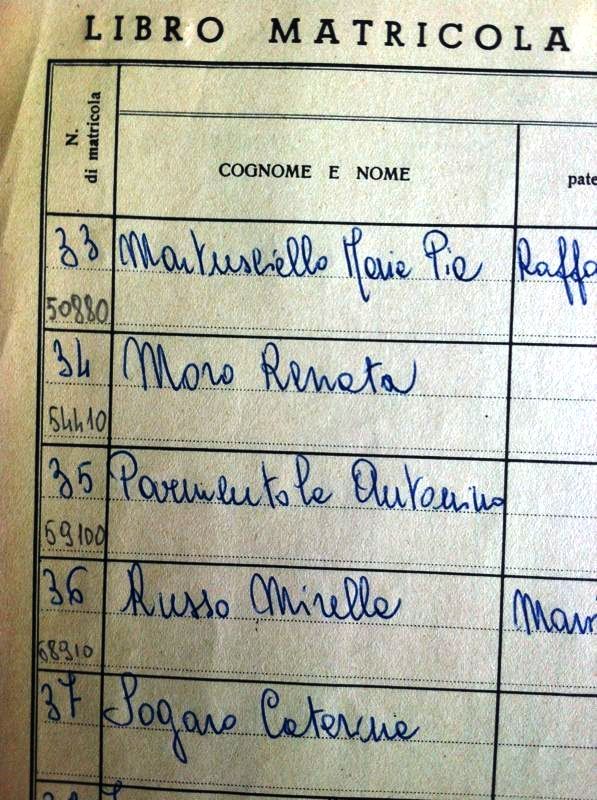 LIBRO MATRICOLA
N. di matricola
COGNOME E NOME pate
33 Martusciello Maria Pia Raffa
50880
34 Moro Renata
54410
35 Parmentola Antonino
59100
36 Russo Mirella
68910
37 Sogaro Caterina